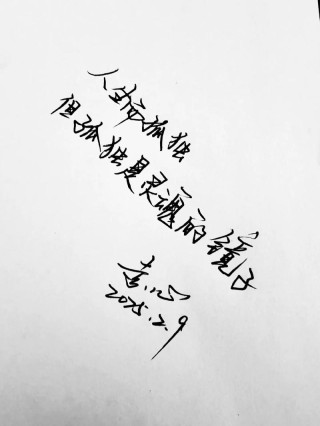 人生孤独
但孤独是灵魂的镜子
2025.2.9